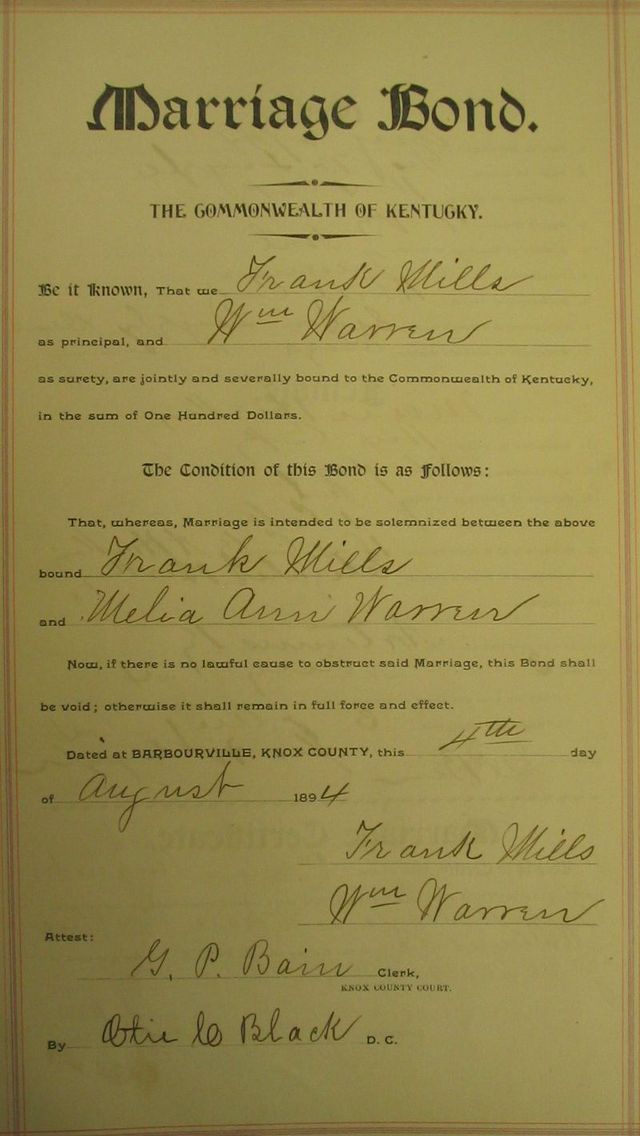 Marriage Bond.
THE COMMONWEALTH OF KENTUCKY.
Be it Known, That we Frank Mills
as principal, and Wm Warren
as surety, are jointly and severally bound to the Commonwealth of Kentucky,
in the sum of One Hundred Dollars.
The Condition of this Bond is as Follows:
That, whereas, Marriage is intended to be solemnized between the above
bound Frank Mills
and Melia Ann Warren
Now, if there is no lawful cause to obstruct said Marriage, this Bond shall
be void; otherwise it shall remain in full force and effect.
Dated at BARBOURVILLE, KNOX COUNTY, this 4th day
of August 1894
Frank Mills
Wm Warren
Attest:
G. P. Bain Clerk,
KNOX COUNTY COURT.
By Black D. C.